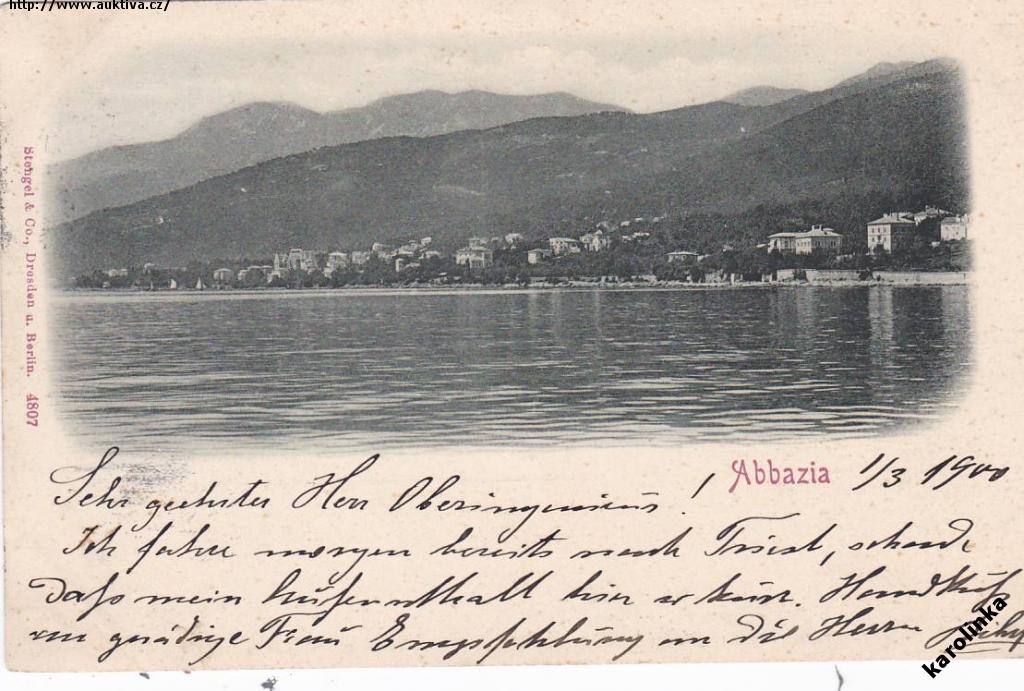 http://www.auktiva.cz/
Stengel & Co., Dresden u. Berlin. 4807
Abbazia 1/3 1900
Sehr geehrter Herr Oberingenieur!
Ich fahre morgen bereits nach Triest, schade
daß mein hier so kurz. Handkuß
gnädige Frau Empfehlung an die Herrn
karolinka